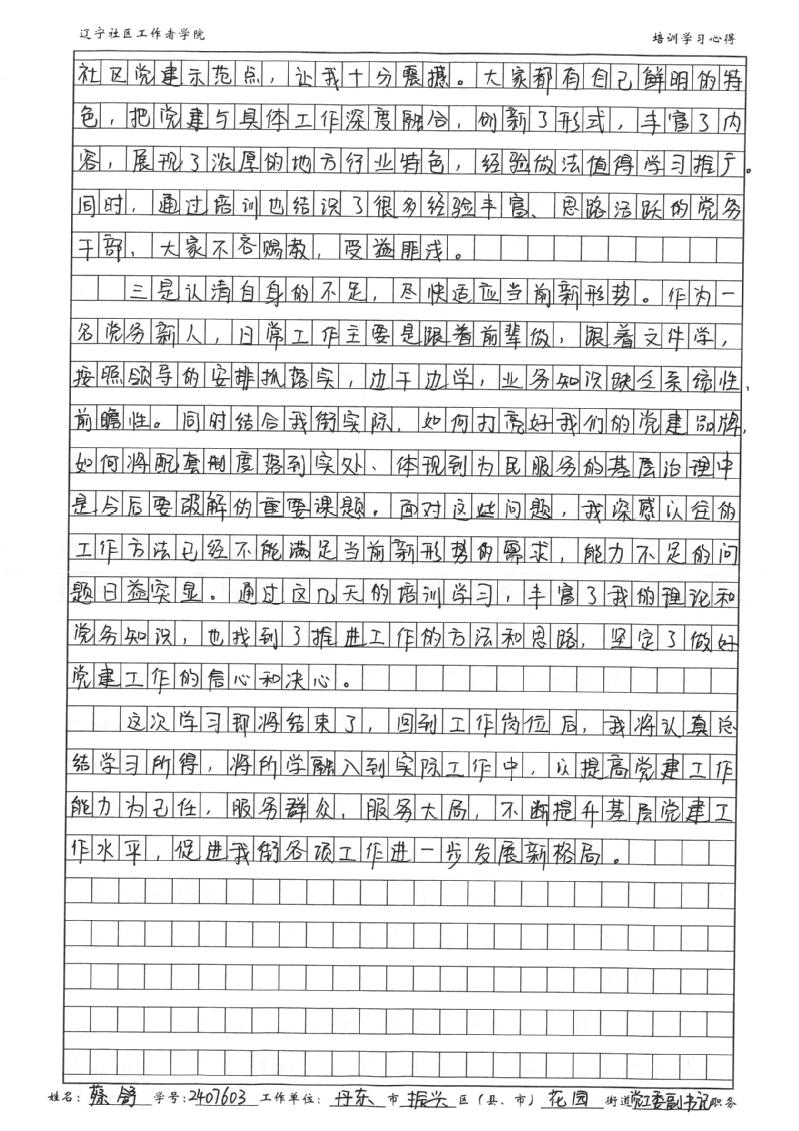 辽宁社区工作者学院
培训学习心得
社区党建示范点，让我十分震撼。大家都有自己鲜明的特
色，把党建与具体工作深度融合，创新了形式，丰富了内
容，展现了浓厚的地方行业特色，经验做法值得学习推广。
同时，通过培训也结识了很多经验丰富、思路活跃的党务
干部，大家不吝赐教，受益匪浅。
三是认清自身的不足，尽快适应当前新形势。作为一
名党务新人，日常工作主要是跟着前辈做，跟着文件学，
按照领导的安排抓落实，边干边学，业务知识缺乏系统性、
前瞻性。同时结合我街实际，如何打亮好我们的党建品牌，
如何将配套制度落到实处、体现到为民服务的基层治理中
是今后要破解的重要课题。面对这些问题，我深感以往的
工作方法已经不能满足当前新形势的需求，能力不足的问
题日益突显。通过这几天的培训学习，丰富了我的理论和
党务知识，也找到了推进工作的方法和思路，坚定了做好
党建工作的信心和决心。
这次学习即将结束了，回到工作岗位后，我将认真总
结学习所得，将所学融入到实际工作中，以提高党建工作
能力为己任，服务群众，服务大局，不断提升基层党建工
作水平，促进我街各项工作进一步发展新格局。
姓名：蔡舒 学号：2407603 工作单位：丹东 市 振兴 区（县、市） 花园 街道党工委副书记职务